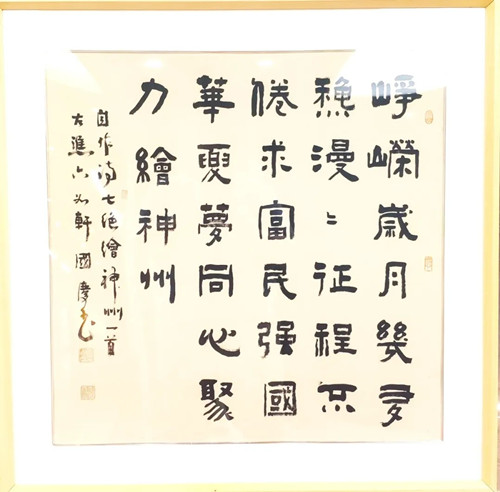 崢嶸歲月幾多
穐漫〻征程不
倦求富民強國
華夏夢同心聚
力繪神州
自作詩七絕繪神州一首
古譙六如軒國慶書